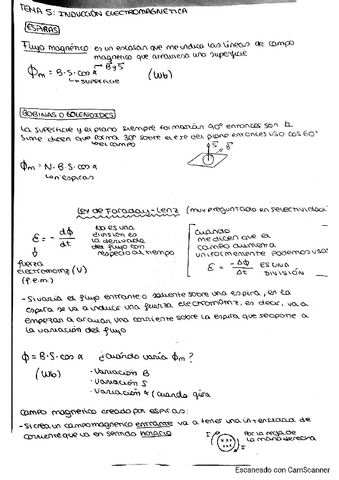 TEMA 5: INDUCCIÓN ELECTROMAGNÉTICA
ESPIRAS
Flujo magnético es un escalar que me indica las líneas de campo
magnético que atraviesa una superficie
B y S
Φm = B·S·cos α (Wb)
↳ superficie
BOBINAS O SOLENOIDES
La superficie y el plano siempre formarán 90º entonces son la
Si me dicen que forma 30º sobre el eje del plano entonces uso cos 60º
↳ el campo
Φm = N·B·S·cos α
↳ n espiras
Ley de Faraday-Lenz (muy preguntado en selectividad)
ε = - dΦ/dt
No es una
división es
la derivada
del flujo con
respecto al tiempo
fuerza
electromotriz (V)
(f.e.m.)
cuando
me dicen que el
campo aumenta
uniformemente podemos usar
ε = - ΔΦ/Δt ES UNA
DIVISIÓN
- Si varía el flujo entrante o saliente sobre una espira, en la
espira se va a inducir una fuerza electromotriz, es decir, va a
empezar a circular una corriente sobre la espira que se opone a
la variación del flujo
Φ = B·S·cos α ¿Cuándo varía Φm?
(Wb)
· Variación B
· Variación S
· Variación α (cuando gira
Campo magnético creado por espiras:
- Si crea un campo magnético entrante va a tener una intensidad de
corriente que va en sentido horario
I
Por la regla de
la mano derecha
Escaneado con CamScanner